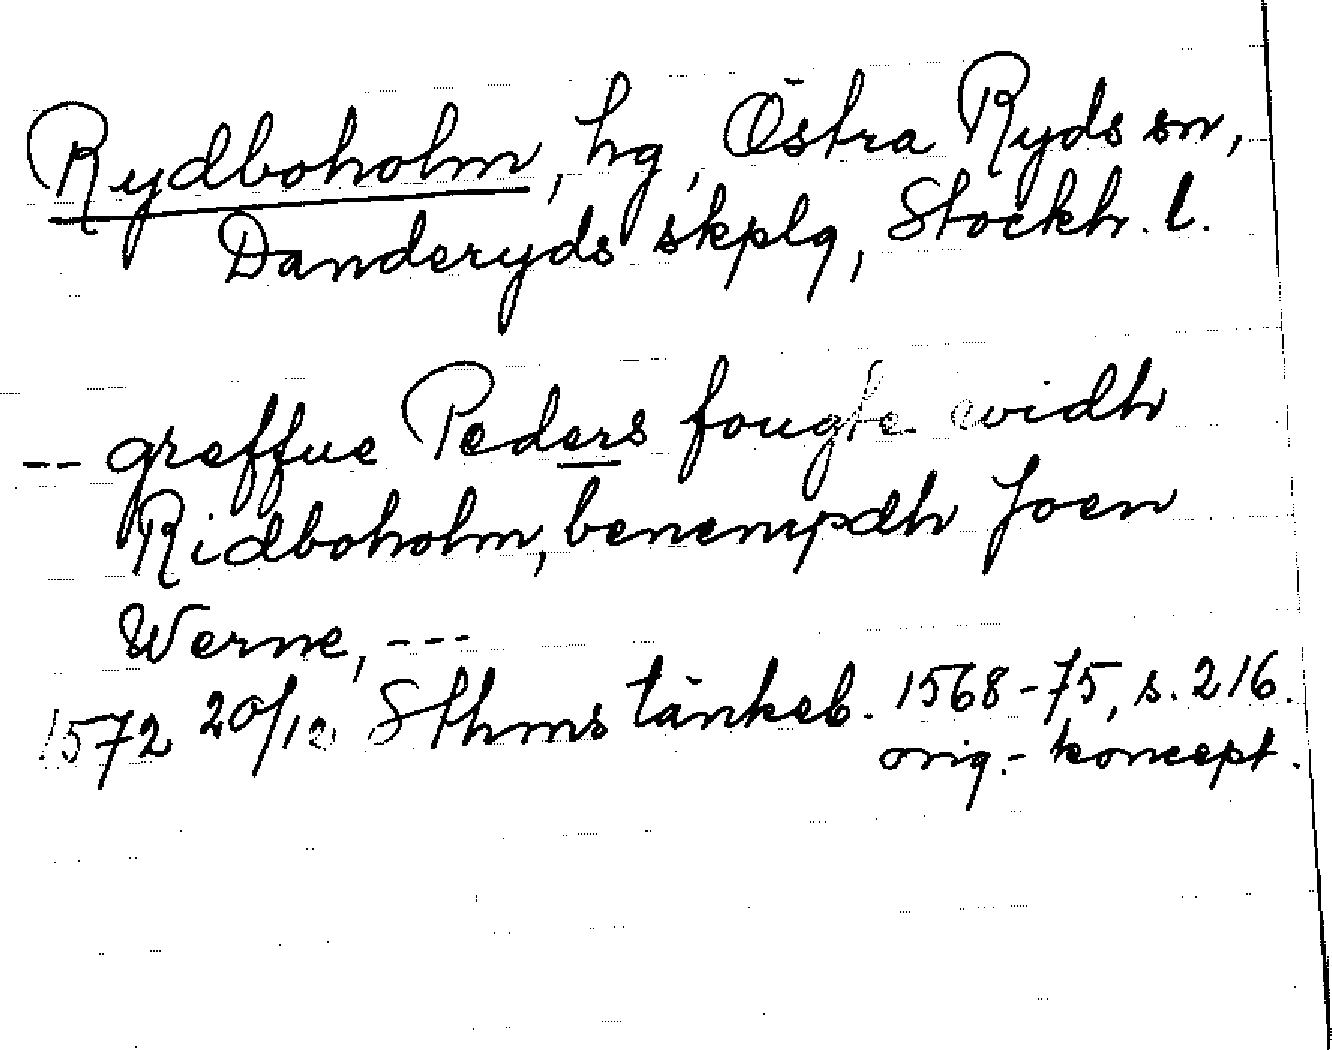 Rydboholm, hg, Östra Ryds sn,
Danderyds skplg, Stockh. l.
-- greffue Peders fougte widh
Ridboholm, benempdh Joen
Werne, ---
1572 20/12 Sthms tänkeb. 1568-75, s. 216.
orig.- koncept.